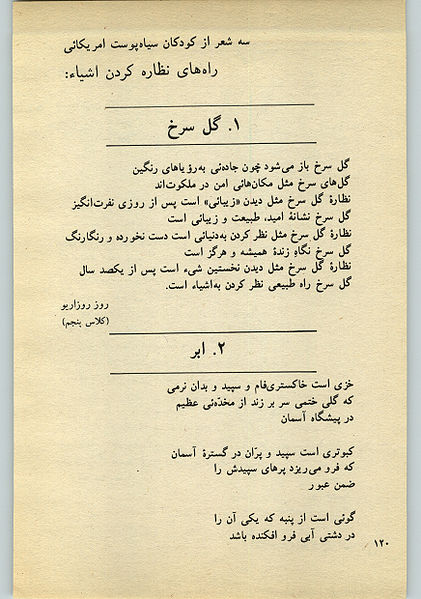 سه شعر از کودکان سیاه‌پوست امریکائی
راه‌های نظاره کردن اشیاء:
۱. گل سرخ
گل سرخ باز می‌شود چون جاده‌ئی به‌رؤیاهای رنگین
گل‌های سرخ مثل مکان‌هائی امن در ملکوت‌اند
نظارهٔ گل سرخ مثل دیدن «زیبائی» است پس از روزی نفرت‌انگیز
گل سرخ نشانهٔ امید، طبیعت و زیبائی است
نظارهٔ گل سرخ مثل نظر کردن به‌دنیائی است دست نخورده و رنگارنگ
گل سرخ نگاهِ زندهٔ همیشه و هرگز است
نظارهٔ گل سرخ مثل دیدن نخستین شیء است پس از یکصد سال
گل سرخ راه طبیعی نظر کردن به‌اشیاء است.
روز روزاریو
(کلاس پنجم)
۲. ابر
خزی است خاکستری‌فام و سپید و بدان نرمی
که گلی ختمی سر بر زند از مخدّه‌ئی عظیم
در پیشگاه آسمان
کبوتری است سپید و پرّان در گسترهٔ آسمان
که فرو می‌ریزد پرهای سپیدش را
ضمن عبور
گوئی است از پنبه که یکی آن را
در دشتی آبی فرو افکنده باشد
۱۲۰